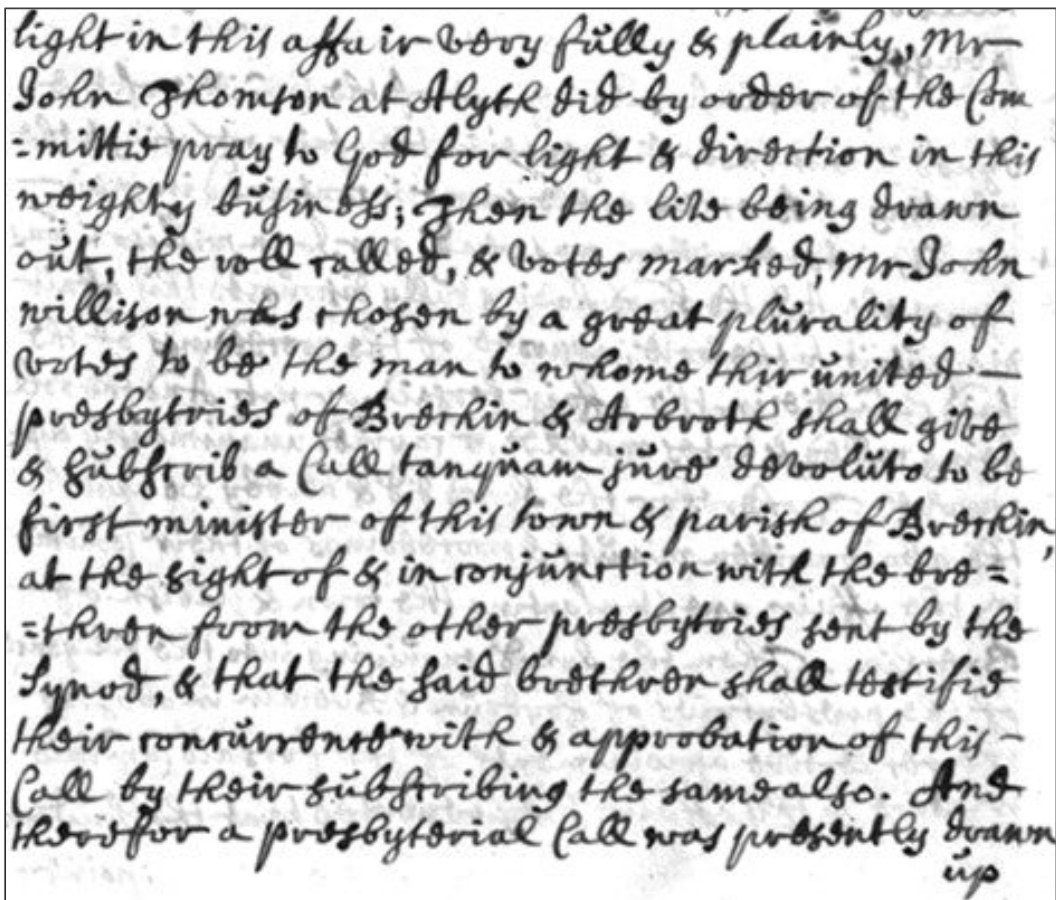 light in this affair very fully & plainly, Mr
John Thomson at Alyth did by order of the Com
=mittie pray to God for light & direction in this
weighty business; Then the lite being drawn
out, the roll called, & votes marked, Mr John
willison was chosen by a great plurality of
votes to be the man to whome thir united —
presbytries of Brechin & Arbroth shall give
& subscrib a Call tanquam jure devoluto to be
first minister of this town & parish of Brechin,
at the sight of & in conjunction with the bre=
=thren from the other presbytries sent by the
Synod, & that the said brethren shall testifie
their concurrence with & approbation of this —
Call by their subscribing the same also. And
therefor a presbyterial Call was presently drawn
up